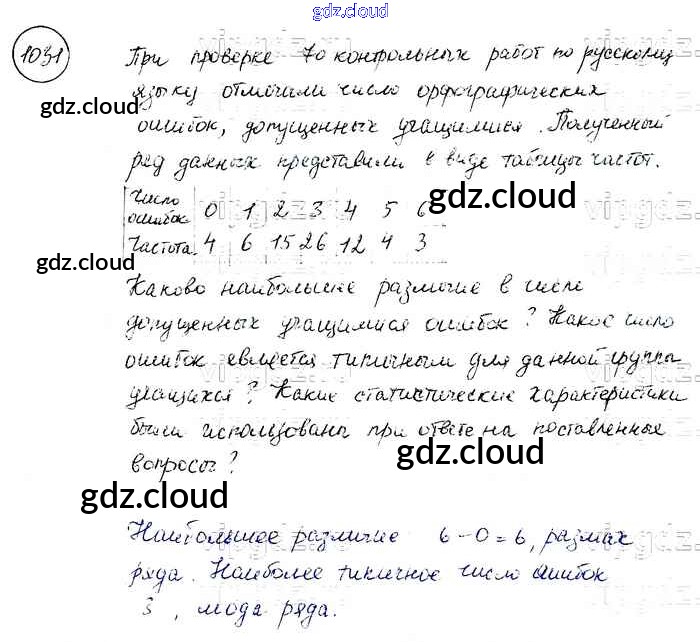 gdz.cloud
1031
При проверке 70 контрольных работ по русскому
языку отмечали число орфографических
gdz.cloud
ошибок, допущенных учащимися. Полученный
ряд данных представили в виде таблицы частот.
Число ошибок 0 1 2 3 4 5 6
gdz.cloud
Частота 4 6 15 26 12 4 3
gdz.cloud
Каково наибольшее различие в числе
допущенных учащимися ошибок? Какое число
ошибок является типичным для данной группы
gdz.cloud
учащихся? Какие статистические характеристики
были использованы при ответе на поставленные
gdz.cloud
вопросы?
gdz.cloud
Наибольшее различие 6-0=6, размах
ряда. Наиболее типичное число ошибок
gdz.cloud
3, мода ряда.